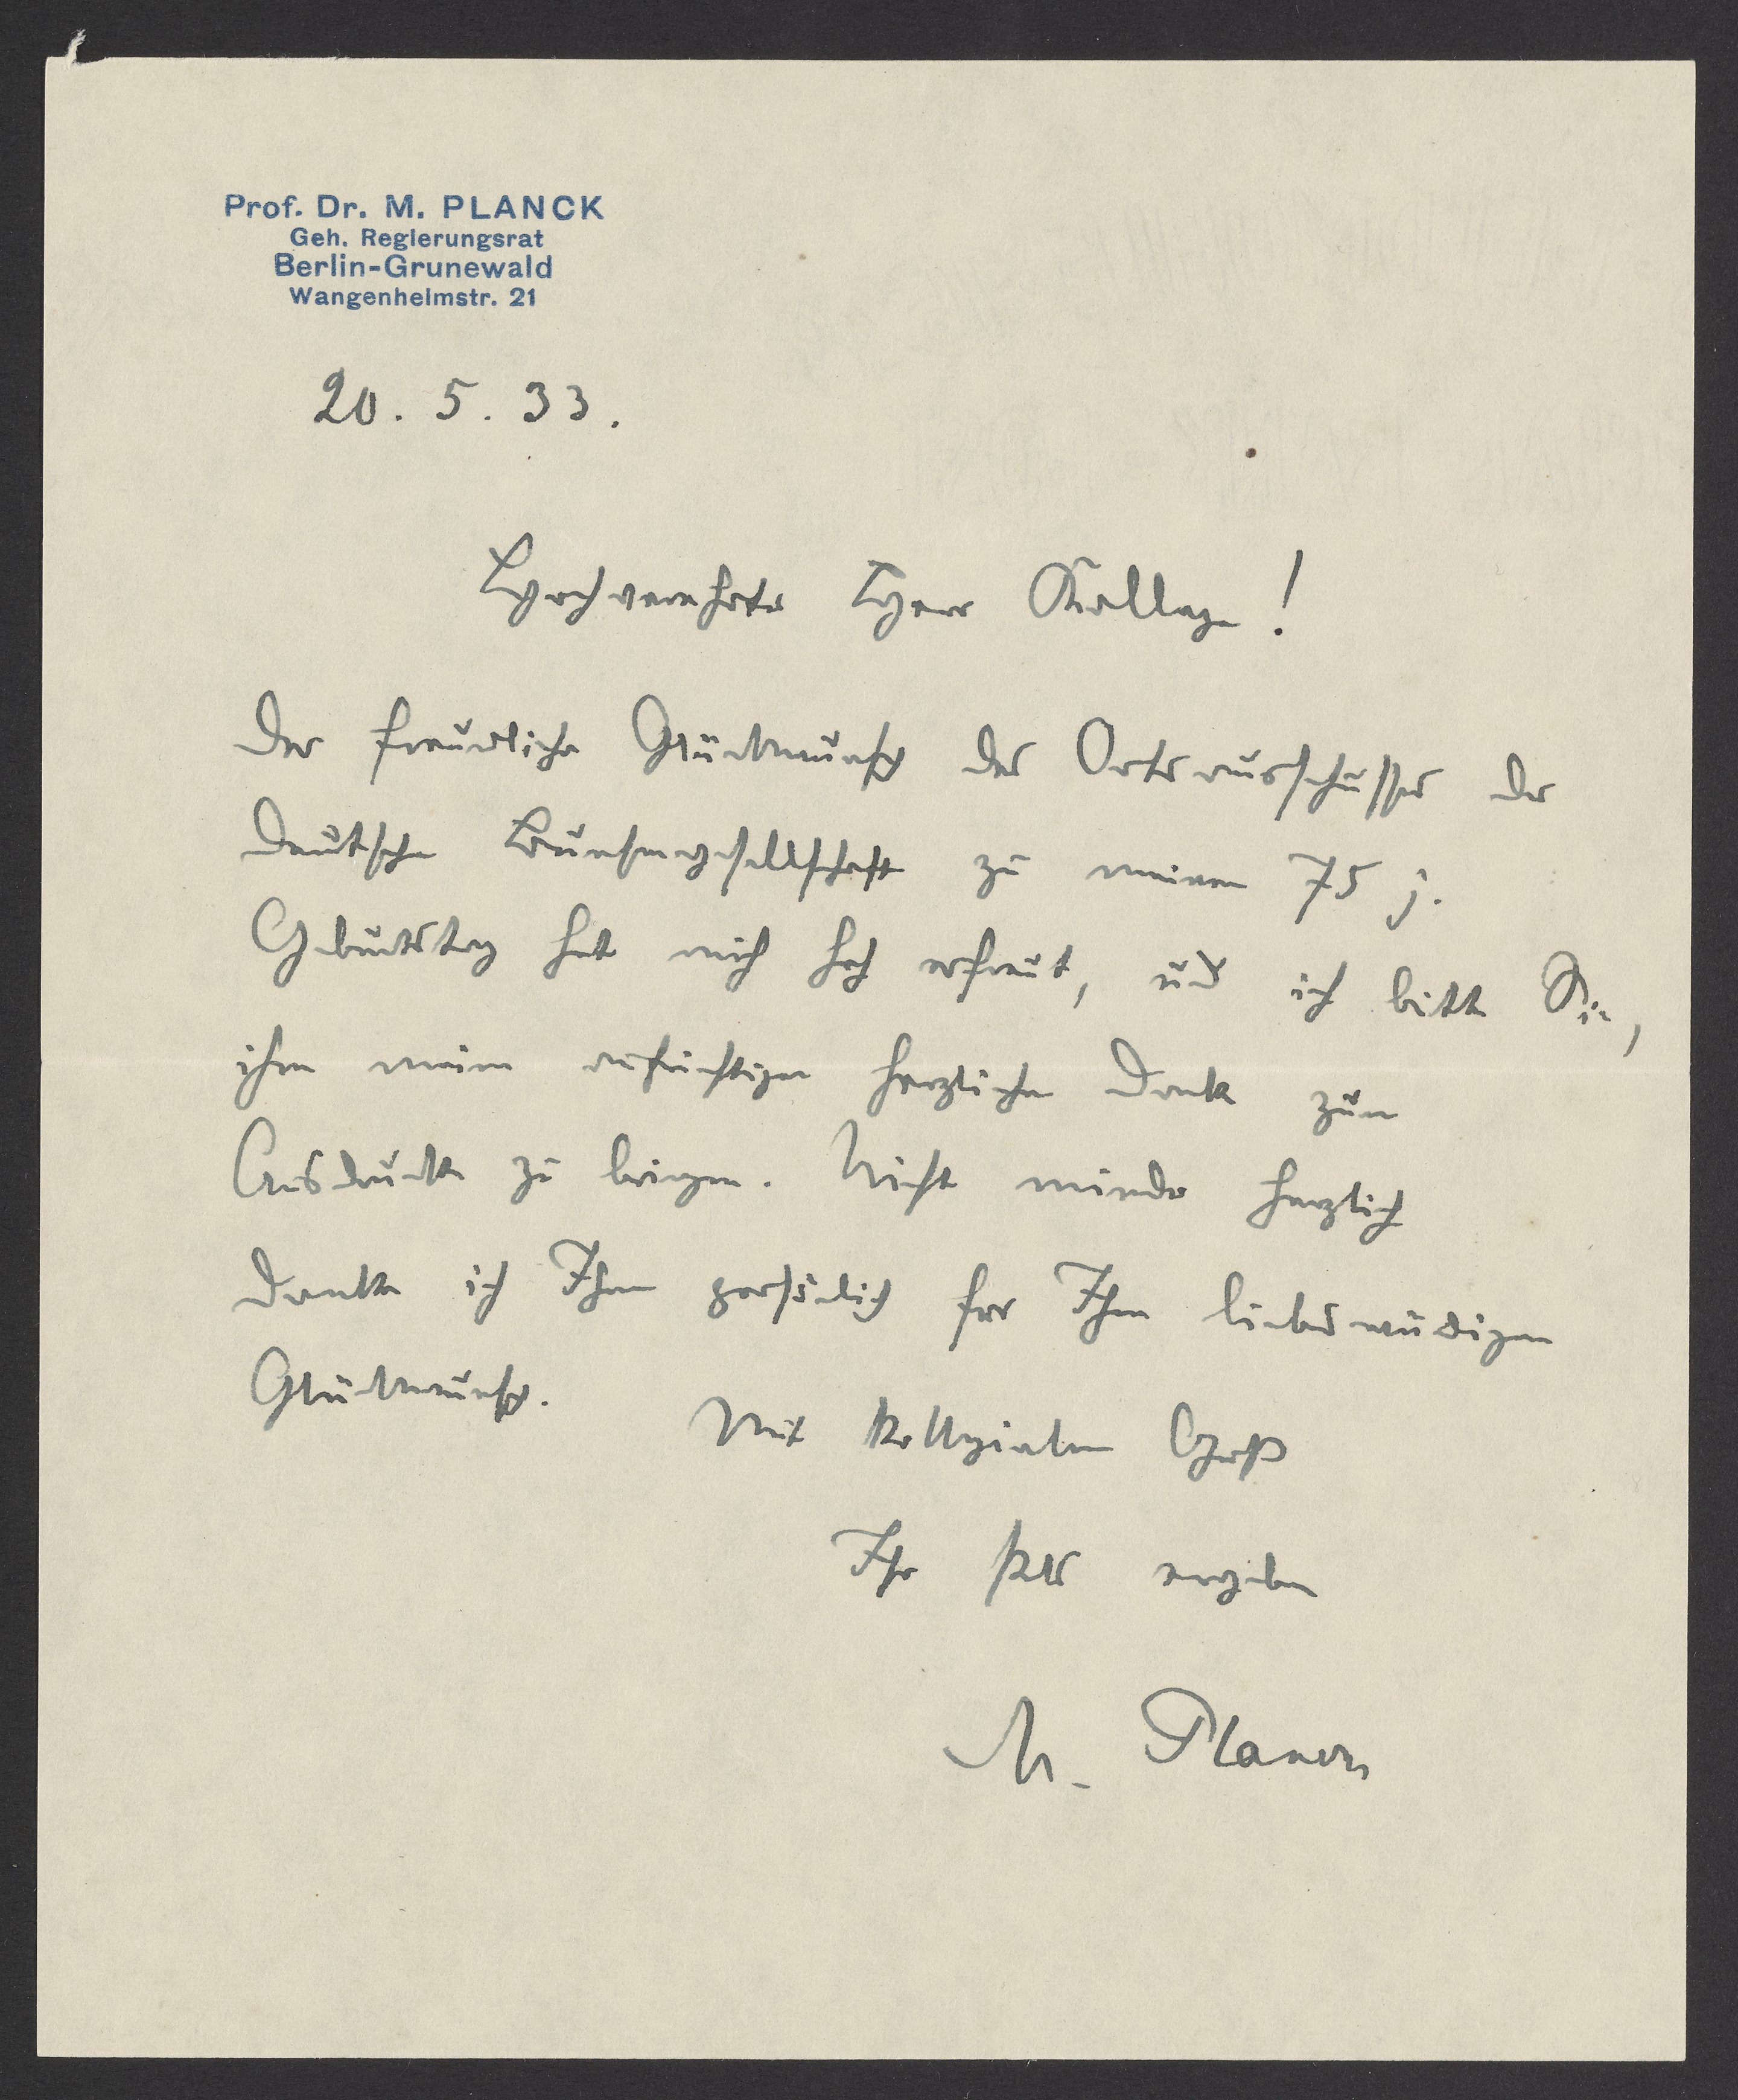 Prof. Dr. M. PLANCK
Geh. Regierungsrat
Berlin-Grunewald
Wangenheimstr. 21
20. 5. 33.
Hochverehrter Herr Kollege!
Der freundliche Glückwunsch des Ortsausschusses der
Deutschen Bunsengesellschaft zu meinem 75 j.
Geburtstag hat mich hoch erfreut, und ich bitte Sie,
ihm meinen aufrichtigen herzlichen Dank zum
Ausdruck zu bringen. Nicht minder herzlich
danke ich Ihnen persönlich für Ihren liebenswürdigen
Glückwunsch.
Mit kollegialem Gruß
Ihr stets ergeben
M. Planck